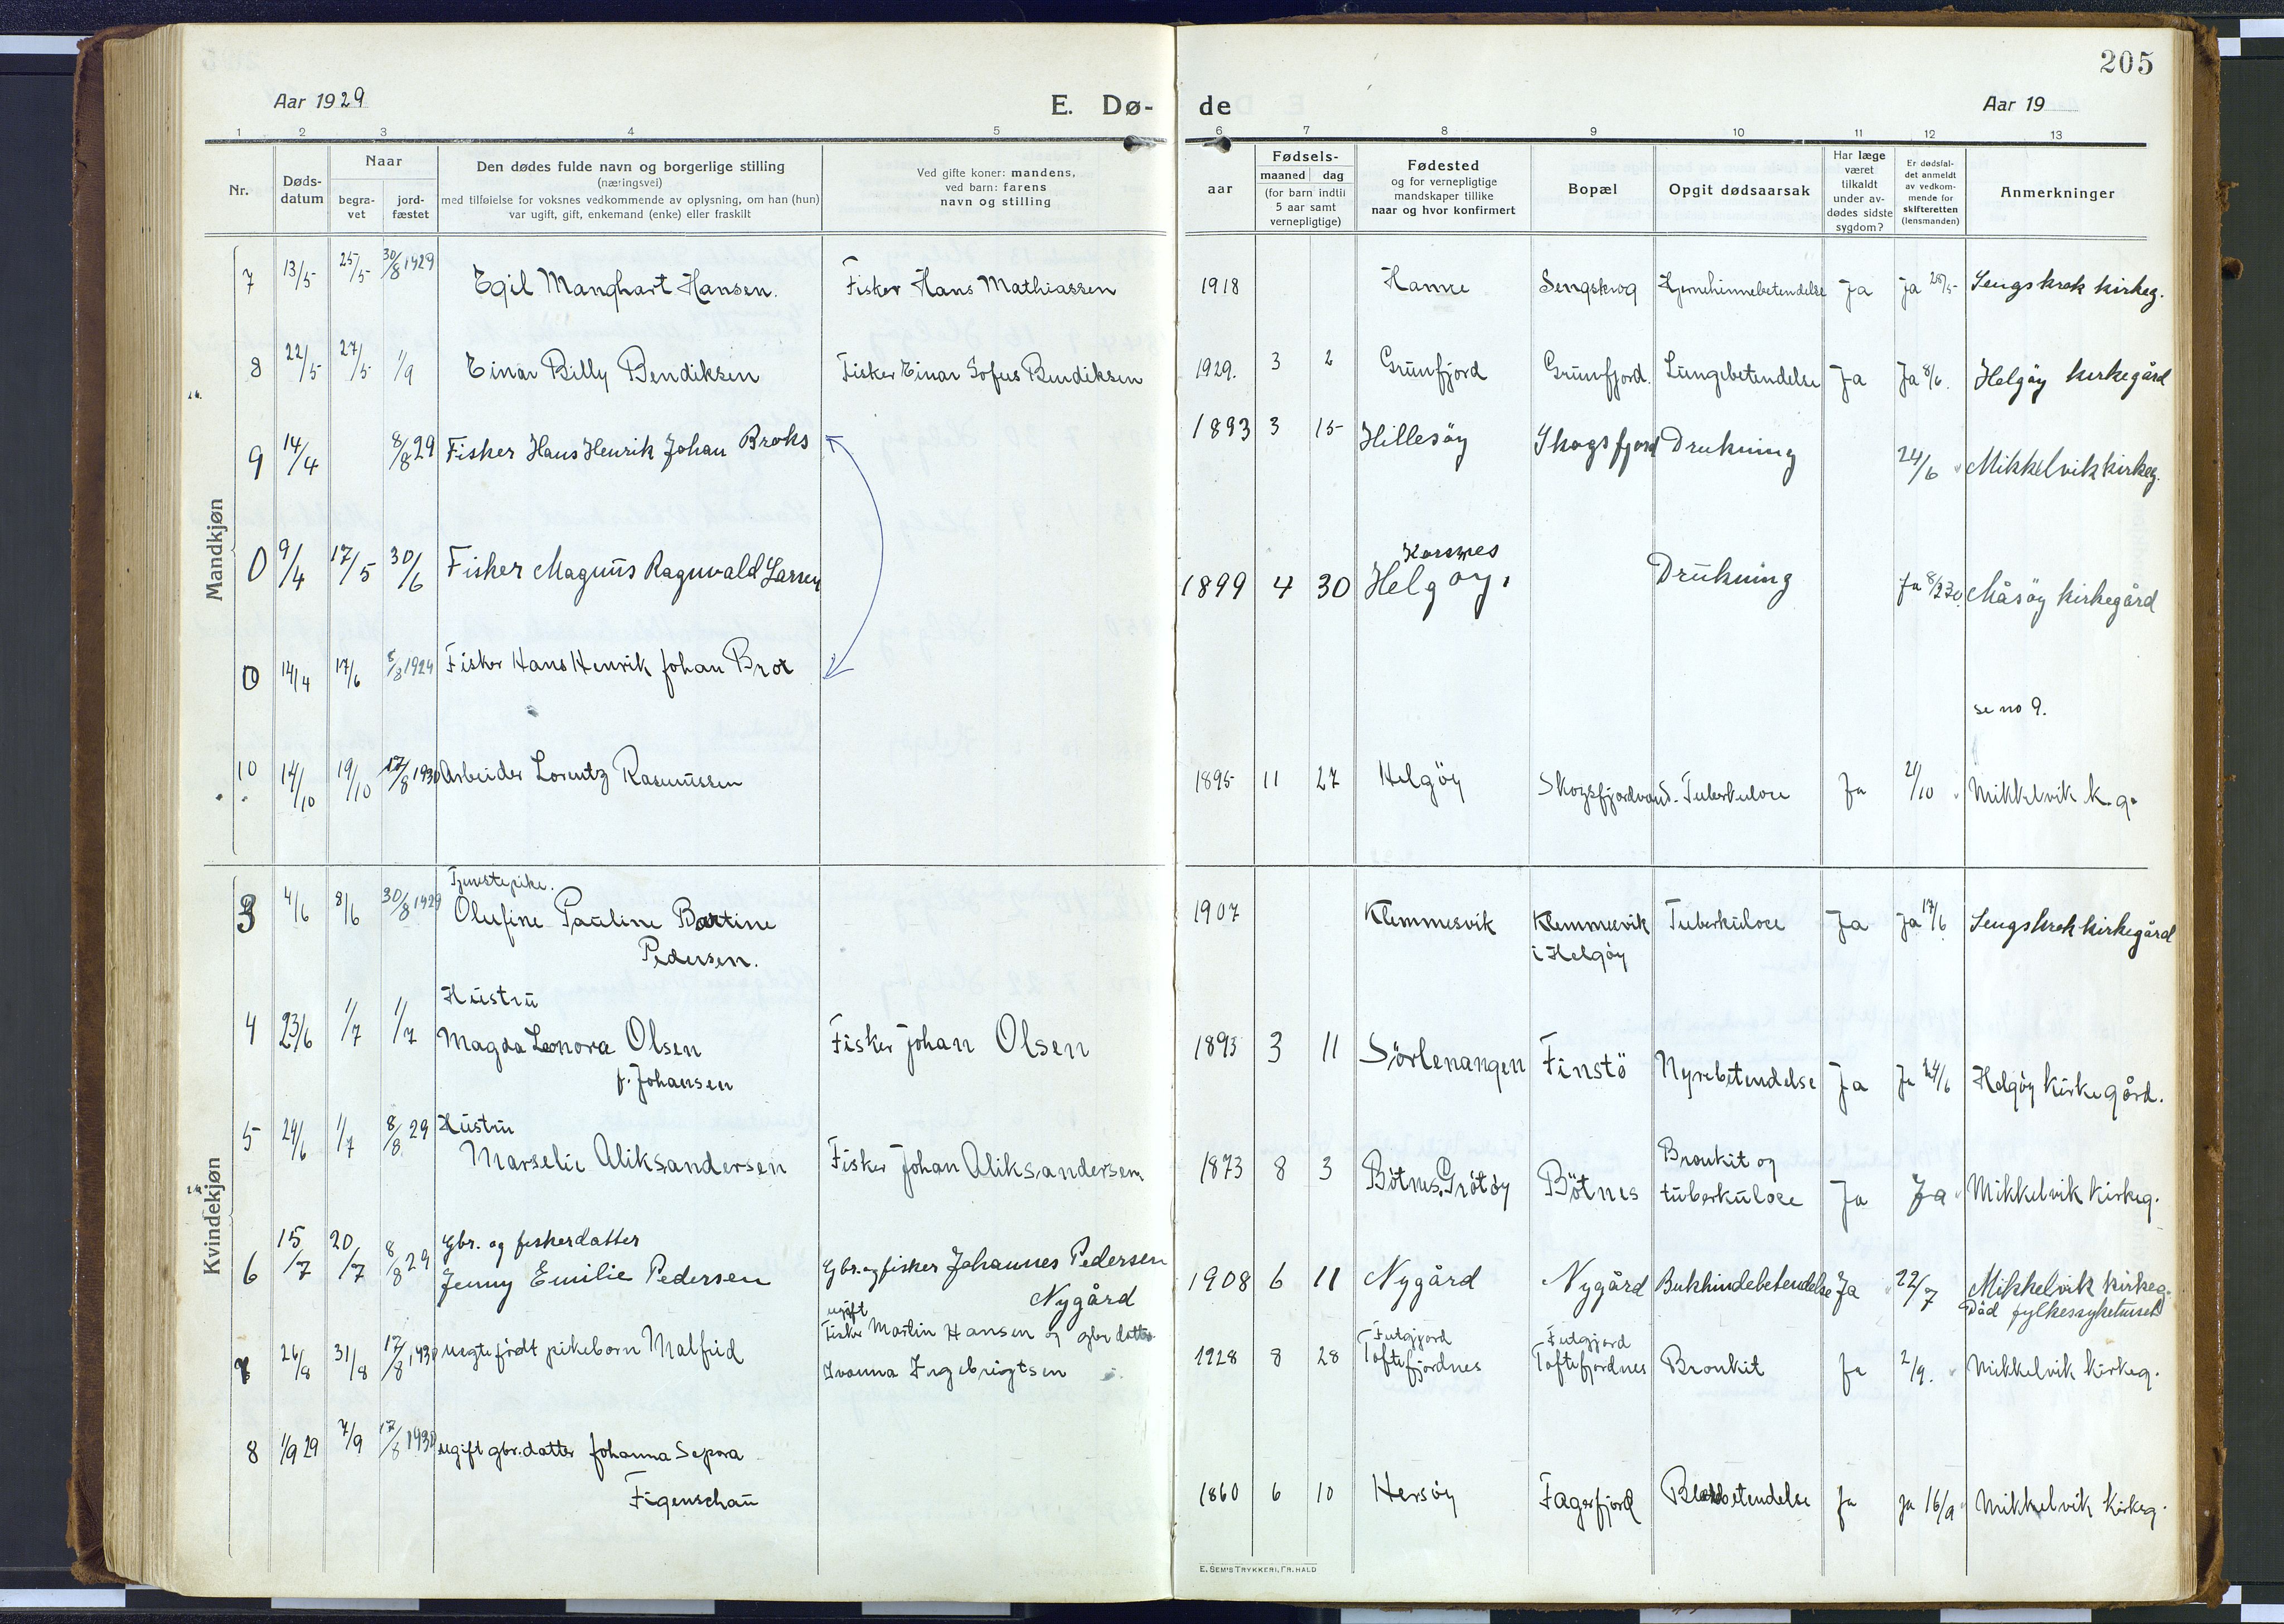 205
Aar 1929 E. Dø- de Aar 19
1 2 3 4 5 6 7 8 9 10 11 12 13
Nr. Døds-datum Naar begra-vet jord-fæstet Den dødes fulde navn og borgerlige stilling (næringsvei) med tilføielse for voksnes vedkommende av oplysning, om han (hun) var ugift, gift, enkemand (enke) eller fraskilt Ved gifte koner: mandens, ved barn: farens navn og stilling aar Fødsels- maaned dag (for barn indtil 5 aar samt vernepligtige) Fødested og for vernepligtige mandskaper tillike naar og hvor konfirmert Bopæl Opgit dødsaarsak Har læge været tilkaldt under av-dødes sidste sygdom? Er dødsfal-det anmeldt av vedkom-mende for skifteretten (lensmanden) Anmerkninger
Mandkjøn
7 13/5 25/5 30/8 1929 Egil Manghart Hansen. Fisker Hans Mathiassen 1918 Hamre Sengskrog Hjernehinnebetendelse Ja Ja 28/5 Sengskrok kirkeg.
8 22/5 27/5 1/9 Einar Billy Bendiksen Fisker Einar Sofus Bendiksen 1929. 3 2 Grunfjord Grunfjord. Lungebetendelse Ja Ja 8/6. Helgøy kirkegård
9 14/4 8/8 29 Fisker Hans Henrik Johan Broks 1893 3 15 Hillesøy Skogsfjord Drukning 24/6 Mikkelvik kirkeg.
0 9/4 17/5 30/6 Fisker Magnus Ragnvald Larsen 1899 4 30 Korsnes Helgøy. Drukning Ja Måsøy kirkegård
0 14/4 17/6 8/8 1929 Fisker Hans Henrik Johan Brox
se no 9.
10 14/10 19/10 17/8 1930 Arbeider Lorentz Rasmussen 1895 11 27 Helgøy Skogsfjordvand. Tuberkulose Ja 21/10 Mikkelvik k.g.
Kvindekjøn
Tjenestepike.
3 4/6 8/6 30/8 1929 Olufine Pauline Bartine 1907 Klemmesvik Klemmesvik Tuberkulose Ja Ja 17/6 Sengskrok kirkegård
Pedersen. i Helgøy
Hustru
4 23/6 1/7 1/7 Magda Leonora Olsen Fisker Johan Olsen 1893 3 11 Sørlenangen Finstö Nyrebetendelse Ja Ja 24/6 Helgøy kirkegård.
f. Johansen
5 24/6 1/7 8/8 29 Hustru
Marselie Aliksandersen Fisker Johan Aliksandersen 1873 8 3 Bötnes, Grötöy Bötnes Bronkit og tuberkulose Ja Ja Mikkelvik kirkeg.
Gbr. og fiskerdatter
6 15/7 20/7 8/8 29 Jenny Emilie Pedersen Gbr. og fisker Johannes Pedersen Nygård 1908 6 11 Nygård Nygård Bukhindebetendelse Ja 22/7 Mikkelvik kirkeg.
Död fylkessykehuset
7 26/8 31/8 17/8 1930 uegte født pikebarn Malfrid ugift Fisker Martin Hansen og gbr datter Ivanna Ingebrigtsen 1928 8 28 Futgjord Toftefjordnes Futgjord Toftefjordnes Bronkit Ja 2/9. Mikkelvik kirkeg.
8 1/9 29 7/9 17/8 1930 ugift gbr.datter Johanna Sepora 1860 6 10 Hersøy Fagerfjord Ja Ja 16/9 Mikkelvik kirkeg.
Figenschau
E. SEM'S TRYKKERI, FR.HALD